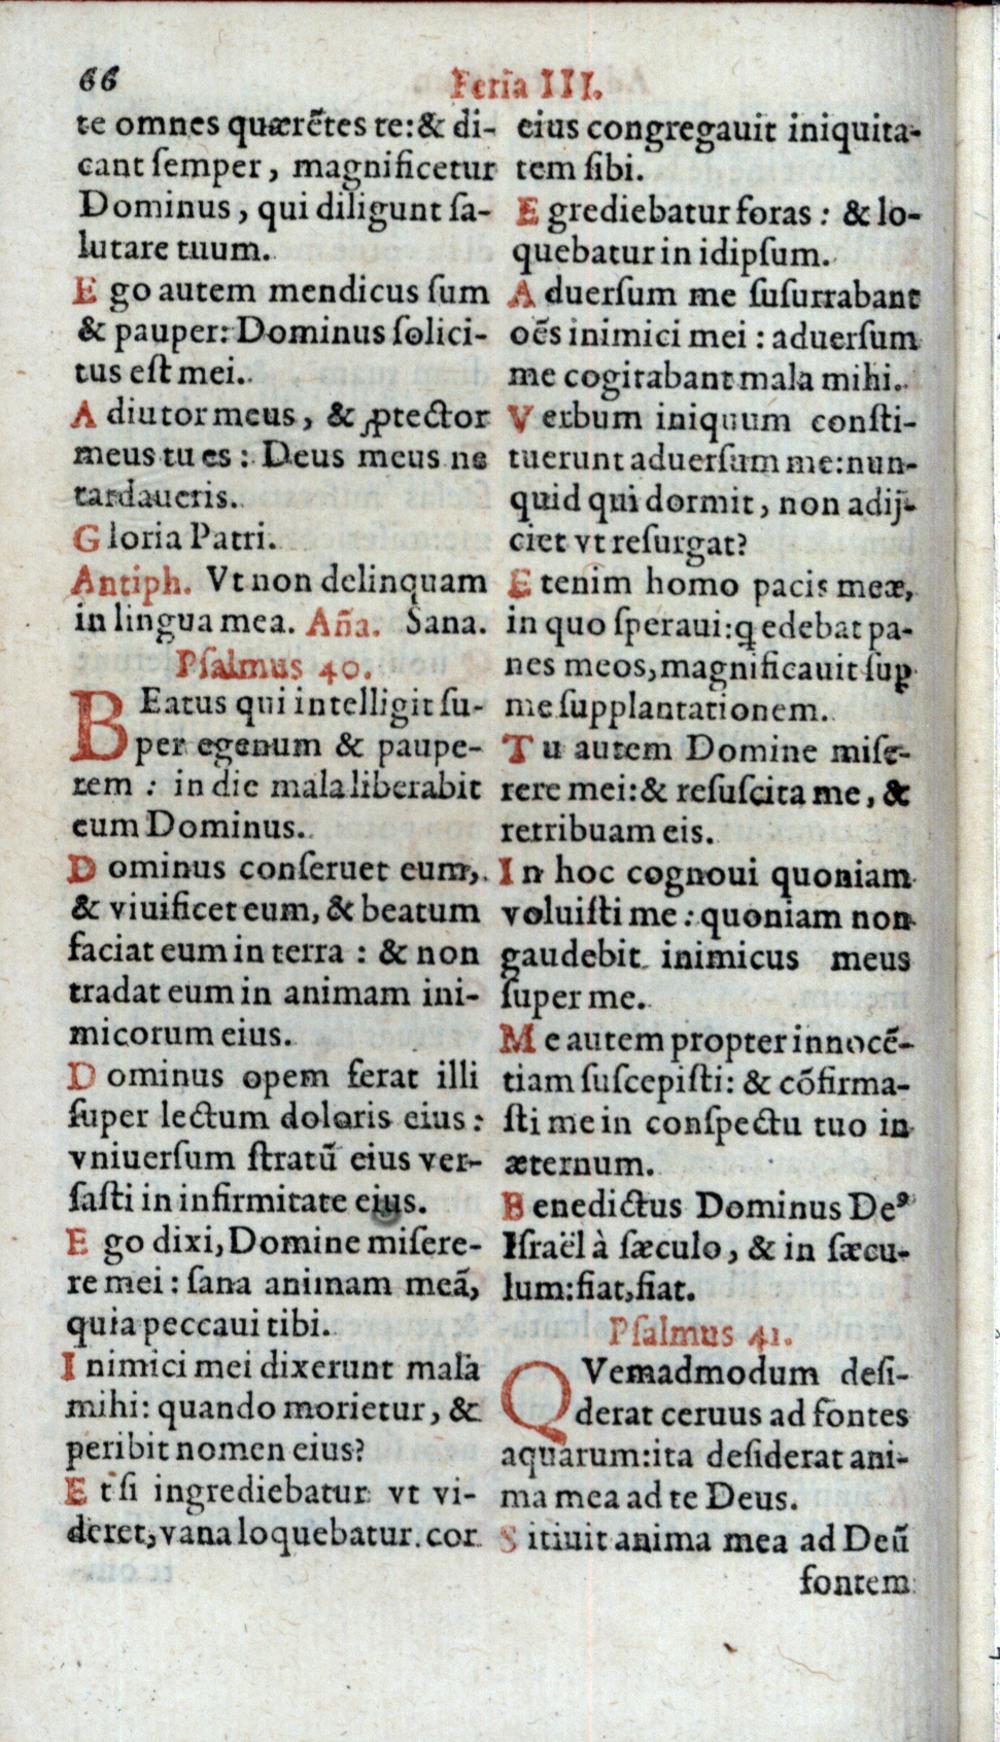 66
Feria III.
te omnes quærẽtes te:& di-
cant ſemper, magnificetur
Dominus, qui diligunt ſa-
lutare tuum.
E go autem mendicus ſum
& pauper: Dominus ſolici-
tus eſt mei.
A diutor meus, & ꝓtector
meus tu es: Deus meus ne
tardaueris.
G loria Patri.
Antiph. Vt non delinquam
in lingua mea. Aña. Sana.
Pſalmus 40.
BEatus qui intelligit ſu-
per egenum & paupe-
rem : in die mala liberabit
eum Dominus.
D ominus conſeruet eum,
& viuificet eum, & beatum
faciat eum in terra : & non
tradat eum in animam ini-
micorum eius.
D ominus opem ferat illi
ſuper lectum doloris eius:
vniuerſum ſtratũ eius ver-
ſaſti in infirmitate eius.
E go dixi, Domine miſere-
re mei: ſana animam meã,
quia peccaui tibi.
I nimici mei dixerunt mala
mihi: quando morietur, &
peribit nomen eius?
E t ſi ingrediebatur vt vi-
deret, vana loquebatur. cor
eius congregauit iniquita-
tem ſibi.
E grediebatur foras: & lo-
quebatur in idipſum.
A duerſum me ſuſurrabant
oẽs inimici mei: aduerſum
me cogitabant mala mihi.
V erbum iniquum conſti-
tuerunt aduerſum me:nun-
quid qui dormit, non adij-
ciet vt reſurgat?
E tenim homo pacis meæ,
in quo ſperaui:q̃ edebat pa-
nes meos,magnificauit ſuꝑ
me ſupplantationem.
T u autem Domine miſe-
rere mei:& reſuſcita me, &
retribuam eis.
I n hoc cognoui quoniam
voluiſti me: quoniam non
gaudebit inimicus meus
ſuper me.
M e autem propter innocẽ-
tiam ſuſcepiſti: & cõfirma-
ſti me in conſpectu tuo in
æternum.
B enedictus Dominus Deꝰ
Iſraël à ſæculo, & in ſæcu-
lum:fiat,fiat.
Pſalmus 41.
QVemadmodum deſi-
derat ceruus ad fontes
aquarum:ita deſiderat ani-
ma mea ad te Deus.
S itiuit anima mea ad Deũ
fontem